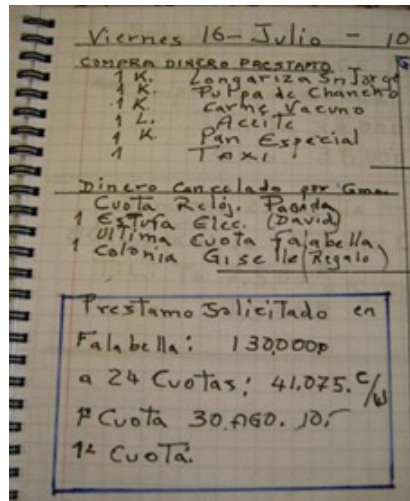 Viernes 16-Julio - 10
COMPRA DINERO PRESTAMO
1 K. Longariza Sn Jorge
1 K. Pulpa de Chancho
1 K. Carne Vacuno
1 L. Aceite
1 K. Pan Especial
1 Taxi
Dinero Cancelado por Gmo.
Cuota Reloj. Pagada
1 Estufa Elec. (David)
Ultima Cuota Falabella
1 Colonia Giselle (Regalo)
Prestamo Solicitado en
Falabella: 130,000p
a 24 Cuotas: 41.075. c/u
1ª Cuota 30.AGO. 10,-
1ª Cuota.